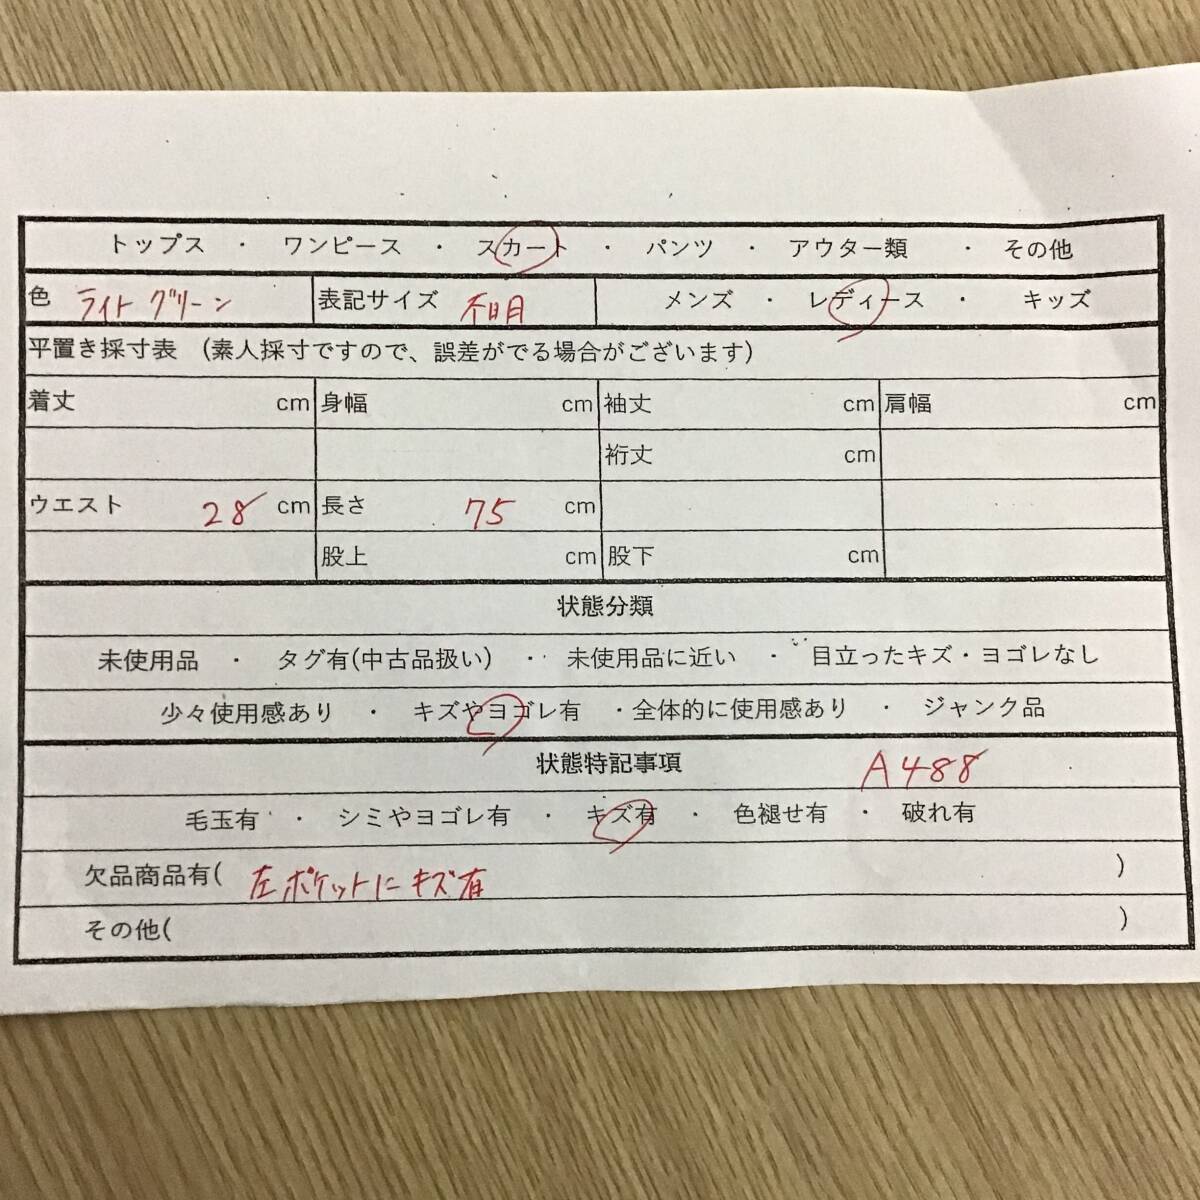 トップス ・ ワンピース ・ スカート ・ パンツ ・ アウター類 ・ その他
色 ライトグリーン 表記サイズ 不明 メンズ ・ レディース ・ キッズ
平置き採寸表 (素人採寸ですので、誤差がでる場合がございます)
着丈 cm 身幅 cm 袖丈 cm 肩幅 cm
裄丈 cm
ウエスト 28 cm 長さ 75 cm
股上 cm 股下 cm
状態分類
未使用品 ・ タグ有(中古品扱い) ・ 未使用品に近い ・ 目立ったキズ・ヨゴレなし
少々使用感あり ・ キズやヨゴレ有 ・全体的に使用感あり ・ ジャンク品
状態特記事項 A488
毛玉有 ・ シミやヨゴレ有 ・ キズ有 ・ 色褪せ有 ・ 破れ有
欠品商品有( 左ポケットにキズ有 )
その他( )